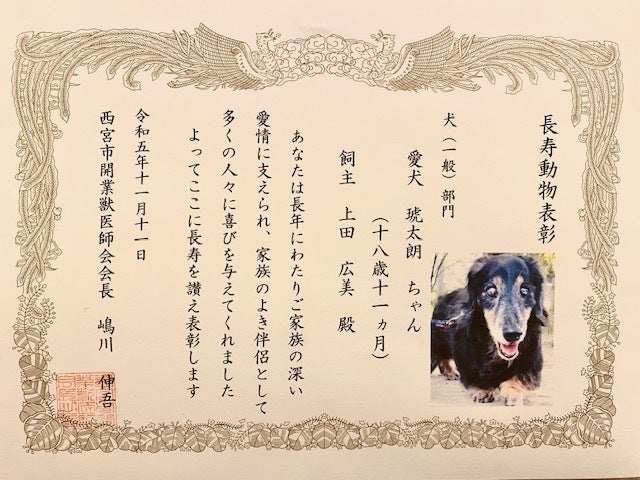 長寿動物表彰
犬（一般）部門
愛犬 琥太朗 ちゃん
（十八歳十一ヵ月）
飼主 上田 広美 殿
あなたは長年にわたりご家族の深い
愛情に支えられ、家族のよき伴侶として
多くの人々に喜びを与えてくれました
よってここに長寿を讃え表彰します
令和五年十一月十一日
西宮市開業獣医師会会長 嶋川 伸吾